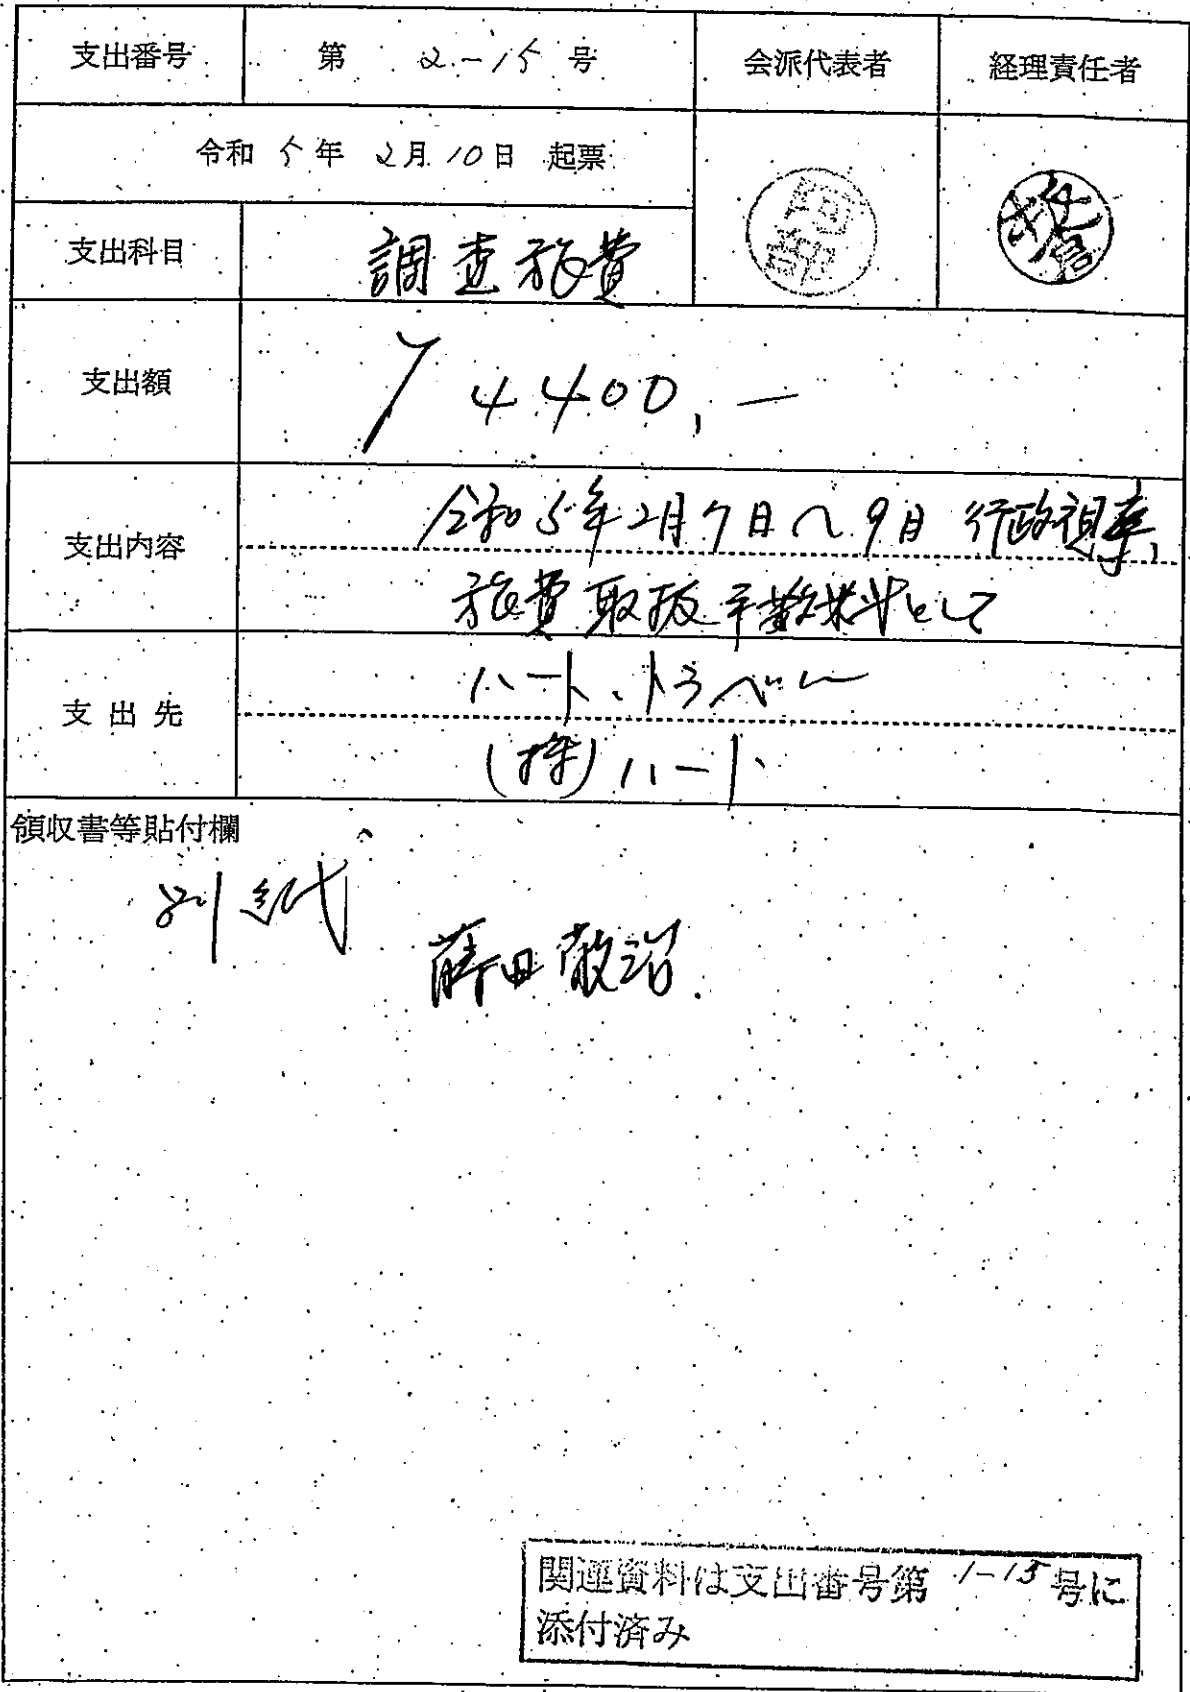 支出番号 第 2-15 号 会派代表者 経理責任者
令和 5 年 2月 10日 起票
支出科目 調査旅費
支出額 ¥4400,-
支出内容 令和5年2月7日〜9日 行政視察
旅費取扱手数料として
支出先 ハート・トラベル
(株)ハート
領収書等貼付欄
別紙
藤田敬治
関連資料は支出番号第 1-15 号に
添付済み